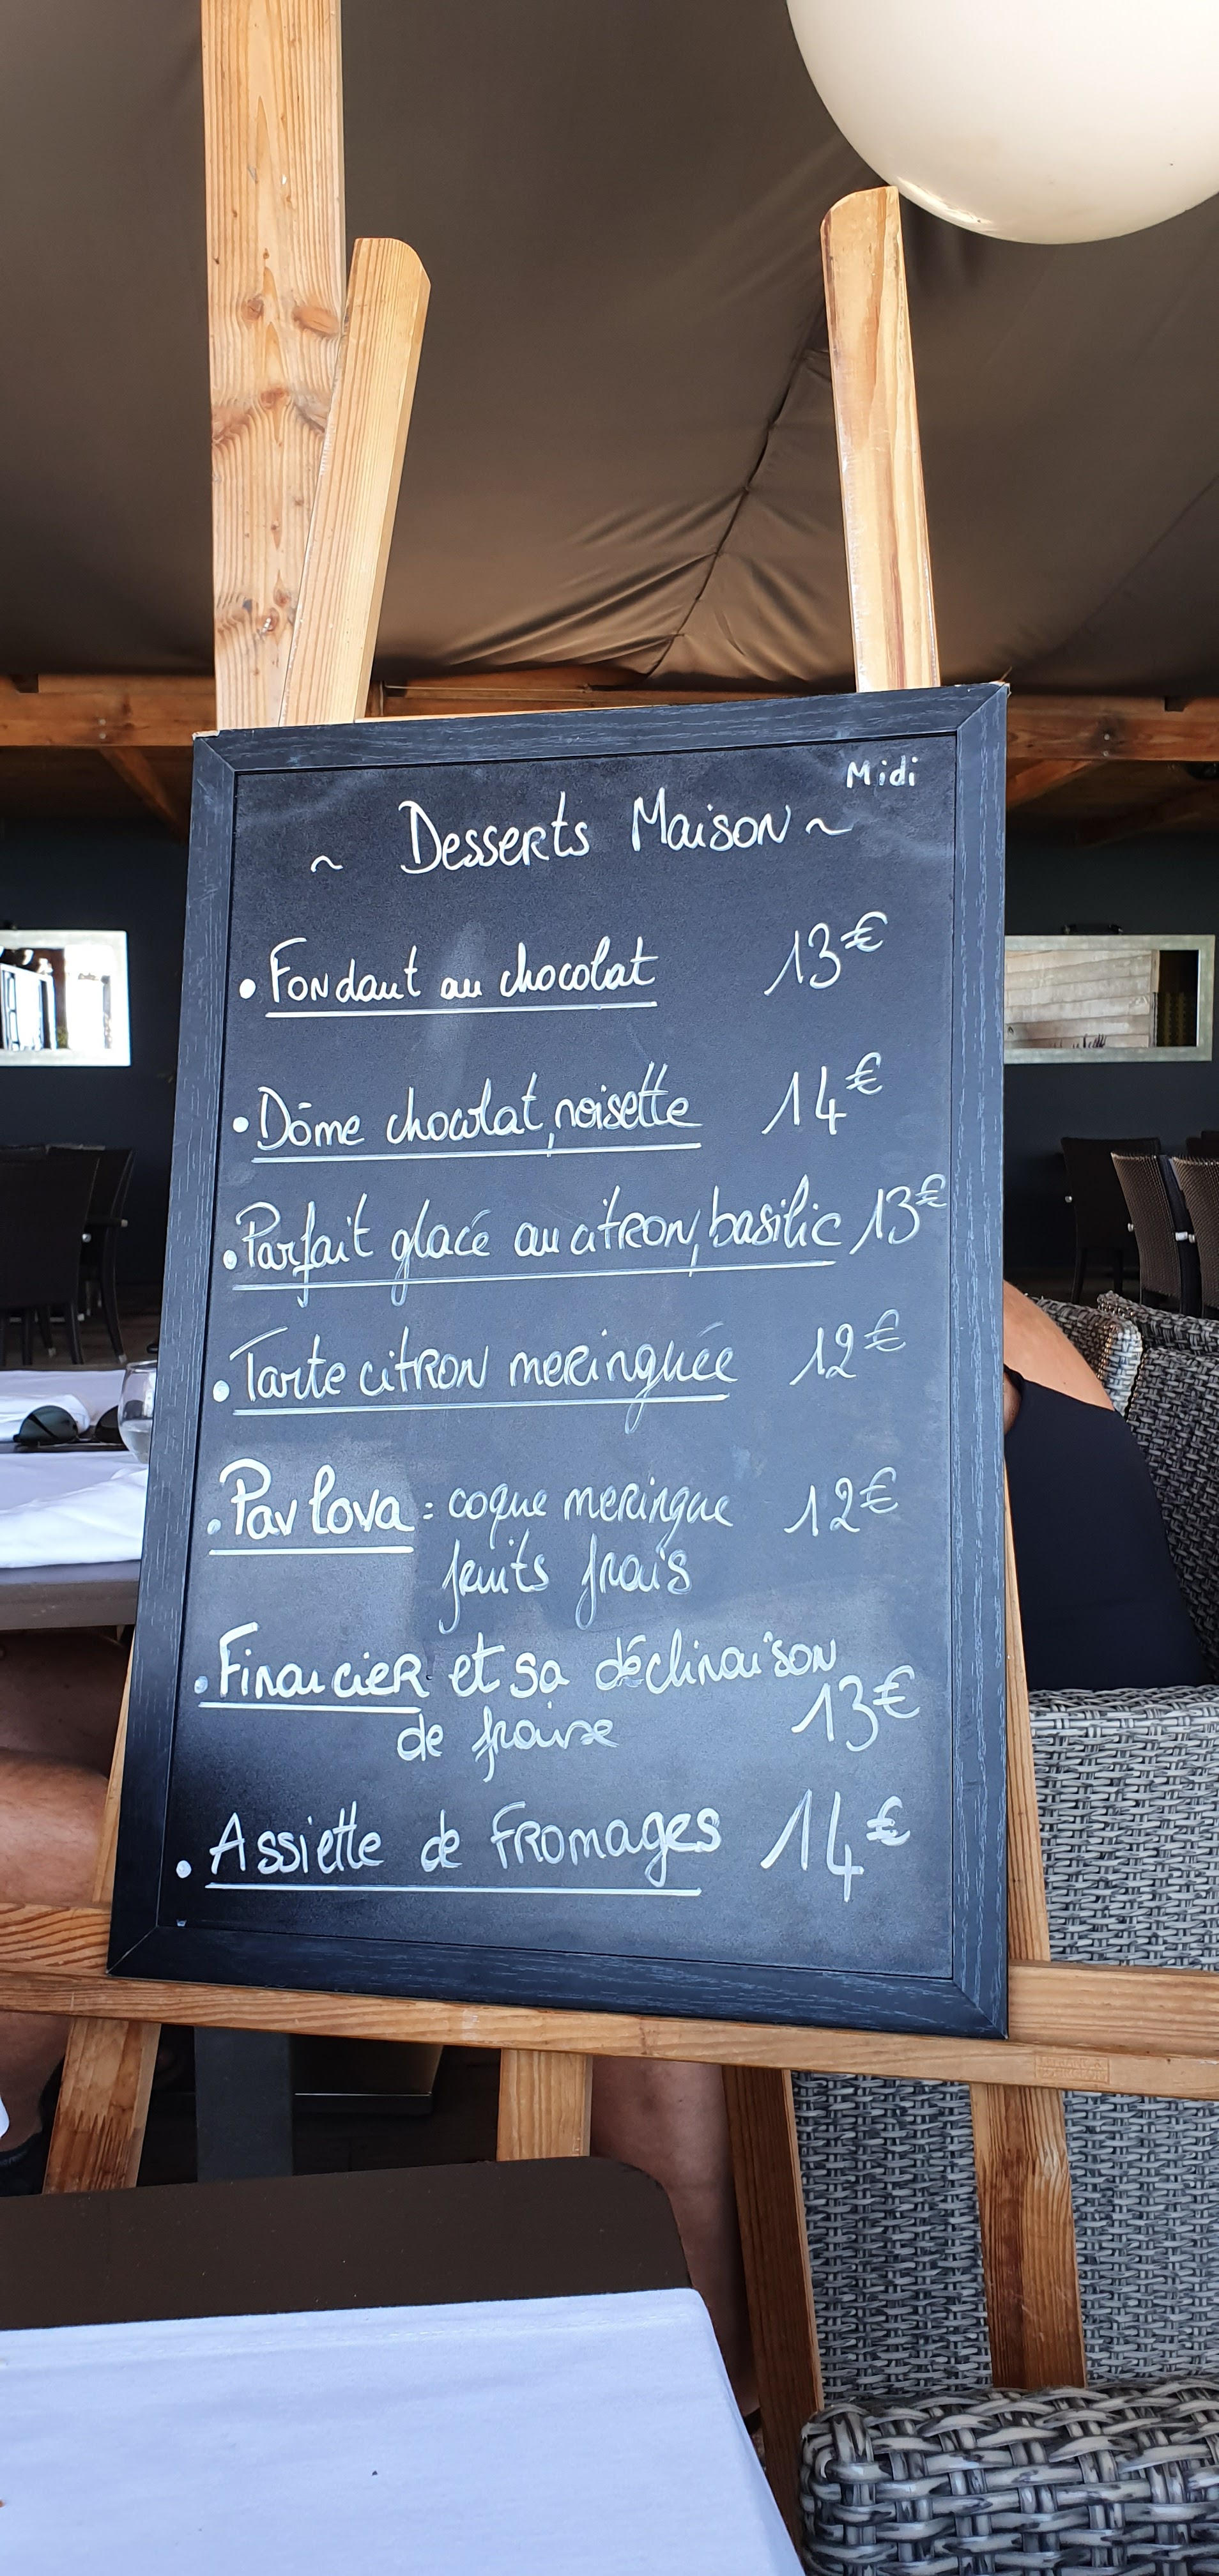 Midi
~ Desserts Maison ~
• Fondant au chocolat 13€
• Dôme chocolat, noisette 14€
• Parfait glacé au citron, basilic 13€
• Tarte citron meringuée 12€
• Pavlova : coque meringue 12€
fruits frais
• Financier et sa déclinaison
de fraise 13€
• Assiette de fromages 14€